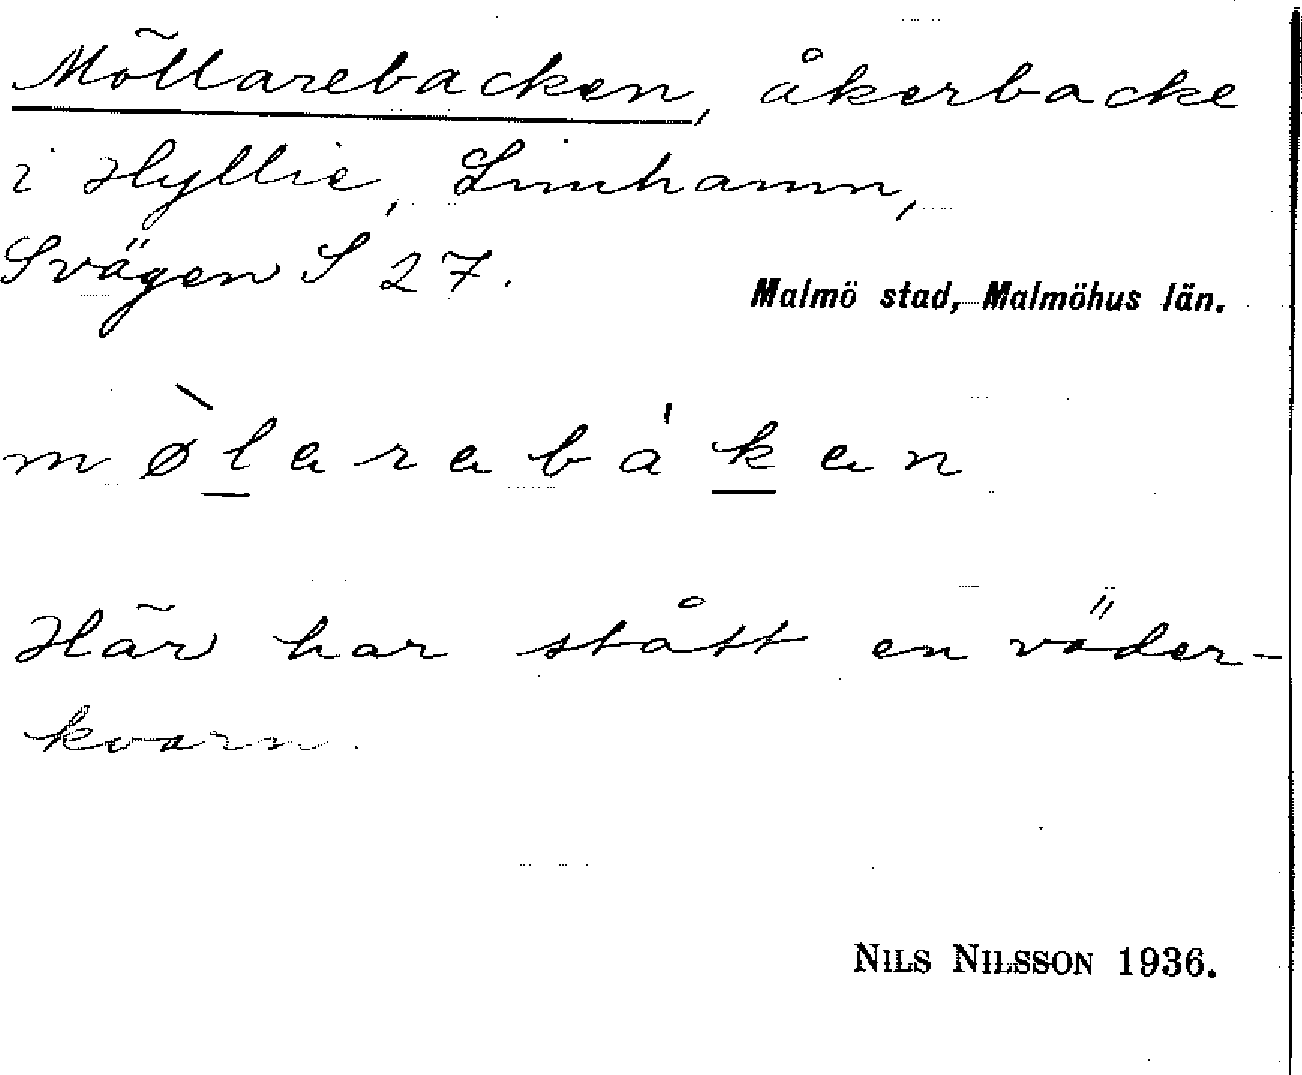 Möllarebacken, åkerbacke
i Hyllie, Limhamn,
Svägen S 27.
Malmö stad, Malmöhus län.
mø̀larabá'kan
Här har stått en väder-
kvarn.
NILS NILSSON 1936.